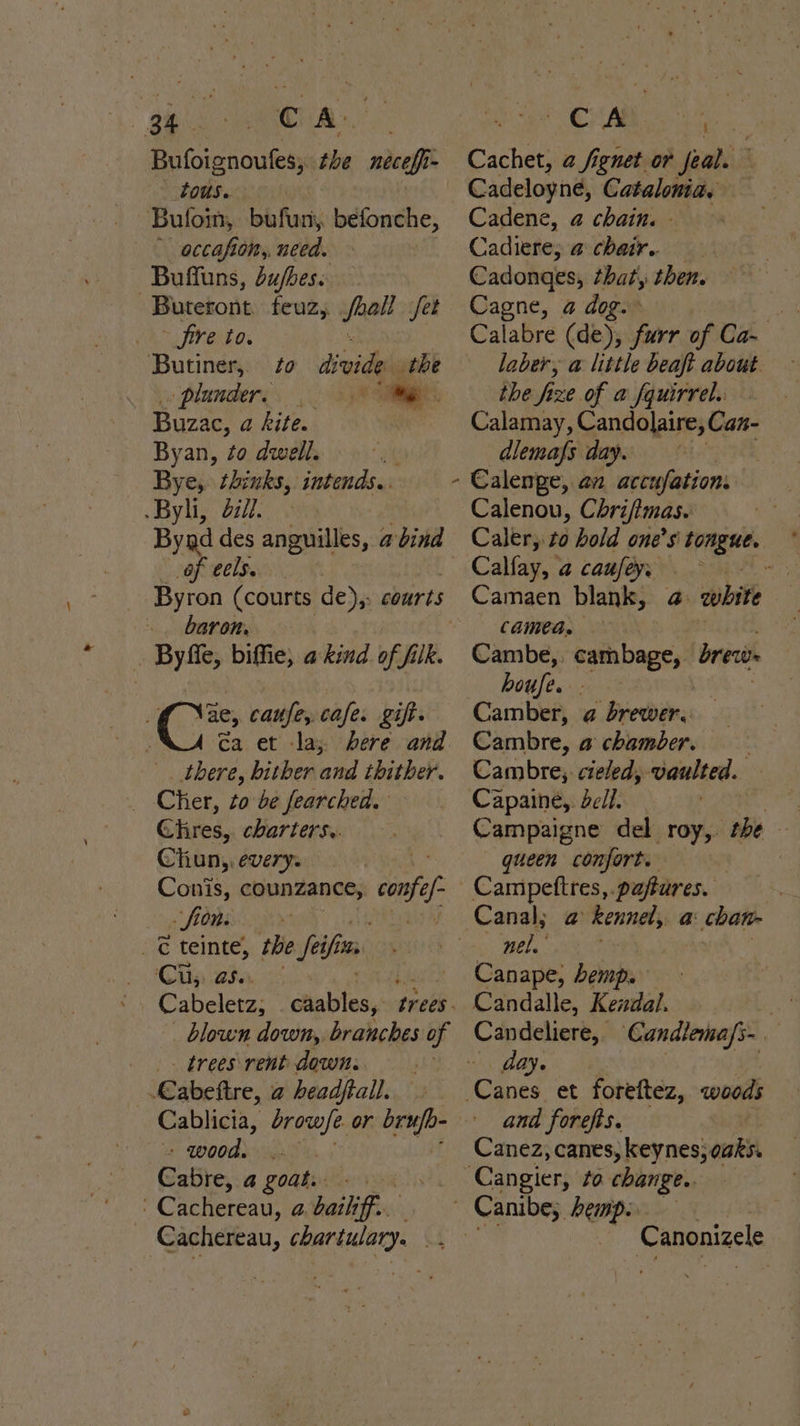 34 C A
Bufoignouſes, the neceſſi-
tous.
Bufoin, bufun, beſonche,
occaſion, need.
Buffuns, buſhes.
Buteront feuz, ſhall ſet
fire to.
Butiner, to divide the
plunder.
Buzac, a kite.
Byan, to dwell.
Bye, thinks, intends.
Byli, bill.
Bygd des anguilles, a bind
of eels.
Byron (courts de), courts
baron.
Byſſe, biſſie, a kind of ſilk.
Cae, cauſe, caſe. gift.
Ca et la, here and
there, hither and thither.
Cher, to be ſearched.
Chres, charters.
Chun, every.
Conis, counzance, confeſ-
ſion.
C teinte, the ſeiſin.
Cu, as.
Cabeletz, caables, trees
blown down, branches of
trees rent down.
Cabeſtre, a headſtall.
Cablicia, browſe or bruſh-
wood.
Cabre, a goat.
Cachereau, a bailiff.
Cachereau, chartulary.
C A
Cachet, a ſignet or ſeal.
Cadeloyne, Catalonia.
Cadene, a chain.
Cadiere, a chair.
Cadonqes, that, then.
Cagne, a dog.
Calabre (de), furr of Ca-
laber, a little beaſt about
the ſize of a ſquirrel.
Calamay, Candolaire, Can-
dlemaſs day.
Calenge, an accuſation.
Calenou, Chriſtmas.
Caler, to hold one's tongue.
Calſay, a cauſey.
Camaen blank, a white
camea.
Cambe, cambage, brew-
houſe.
Camber, a brewer.
Cambre, a chamber.
Cambre, cieled, vaulted.
Capaine, bell.
Campaigne del roy, the
queen confort.
Campeſtres, paſtures.
Canal, a kennel, a chan-
nel.
Canape, hemp.
Candalle, Kendal.
Candeliere, Candlemaſs-
day.
Canes et foreſtez, woods
and foreſts.
Canez, canes, keynes, oaks.
Cangier, to change.
Canibe, hemp.
Canonizele